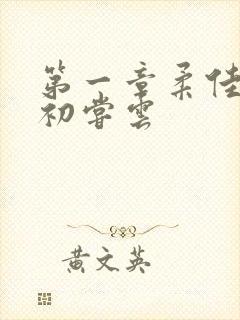 第一章柔佳
初嘗雲
黄文英